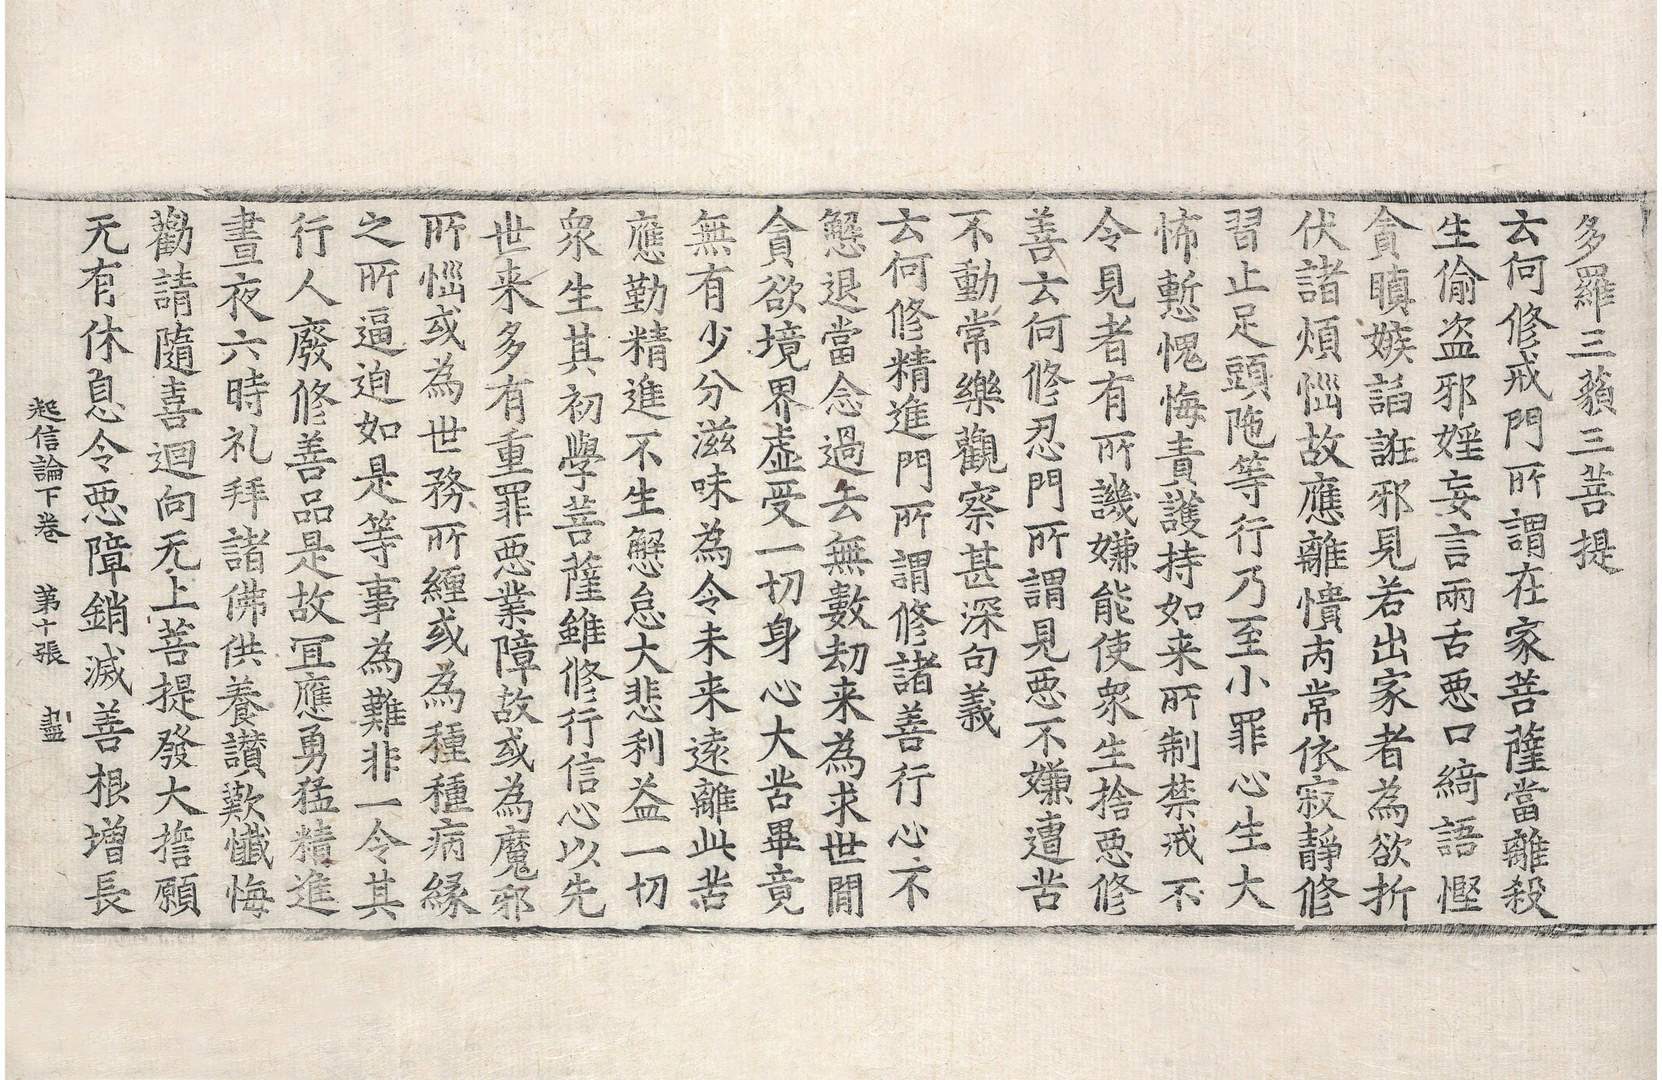 多羅三藐三菩提
云何修戒門所謂在家菩薩當離殺
生偷盜邪婬妄言兩舌惡口綺語慳
貪瞋嫉諂誑邪見若出家者為欲折
伏諸煩惱故應離憒丙常依寂靜修
習止足頭陁等行乃至小罪心生大
怖慙愧悔責護持如来所制禁戒不
令見者有所譏嫌能使眾生捨惡修
善云何修忍門所謂見惡不嫌遭苦
不動常樂觀察甚深句義
云何修精進門所謂修諸善行心不
懈退當念過去無數劫来為求世間
貪欲境界虛受一切身心大苦畢竟
無有少分滋味為令未来遠離此苦
應勤精進不生懈怠大悲利益一切
眾生其初學菩薩雖修行信心以先
世来多有重罪惡業障故或為魔邪
所惱或為世務所纏或為種種病緣
之所逼迫如是等事為難非一令其
行人廢修善品是故冝應勇猛精進
晝夜六時礼拜諸佛供養讚歎懺悔
勸請隨喜迴向无上菩提發大誓願
无有休息令惡障銷滅善根增長
起信論下卷　第十張　盡